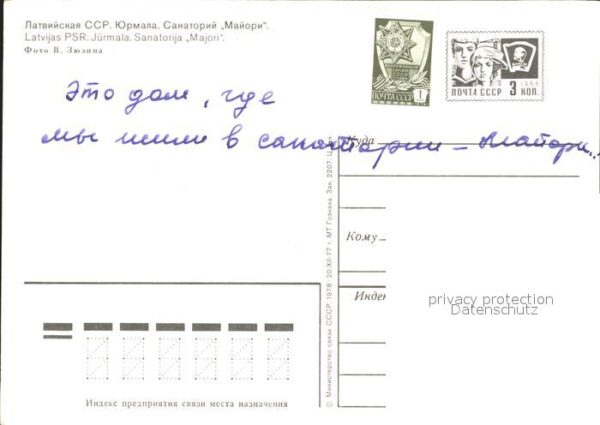 Латвийская ССР. Юрмала. Санаторий „Майори“.
Latvijas PSR. Jūrmala. Sanatorija „Majori“.
Фото В. Зюзина
ПОЧТА СССР 1
1966
ПОЧТА СССР 3 КОП.
Это дом, где
мы жили в санатории – Майори..
Куда
Кому
Индек
privacy protection
Datenschutz
© Министерство связи СССР. 1978 20.XII-77 г. МТ Гознака. Зак. 2207. Ц.
Индекс предприятия связи места назначения